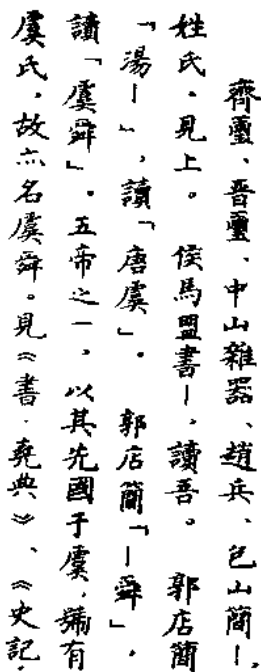 齊璽、晉璽、中山雜器、趙兵、包山簡丨，
姓氏。見上。 侯馬盟書丨，讀吾。 郭店簡
「湯丨」，讀「唐虞」。 郭店簡「丨舜」，
讀「虞舜」。五帝之一，以其先國于虞，號有
虞氏，故亦名虞舜。見《書·堯典》、《史記·